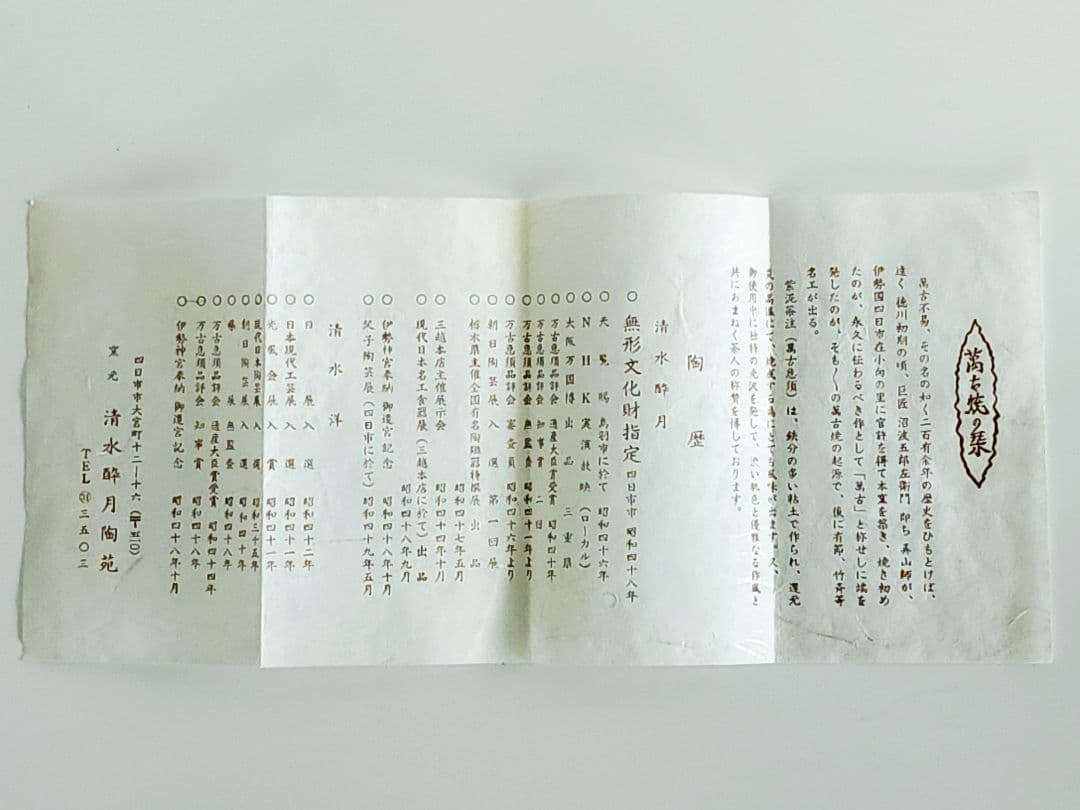 萬古焼の栞
萬古不易、その名の如く二百有余年の歴史をひもとけば、
遠く徳川初期の頃、巨匠 沼波五郎左衛門 即ち 弄山師が、
伊勢国四日市在小向の里に官許を得て本窯を築き、焼き初め
たのが、永久に伝わるべき作として「萬古」と称せしに端を
発したのが、そも〱の萬古焼の起源で、後に有節、竹斉等
名工が出る。
紫泥茶注(萬古急須)は、鉄分の多い粘土で作られ、還元
御使用中に独特の光沢を発して、渋い肌色と優雅なる作風と
共にあまねく茶人の称賛を博しております。
陶歴
清水酔月
○ 無形文化財指定 四日市市 昭和四十八年
○ 天覧賜 鳥羽市に於て 昭和四十六年
○ NHK実演放映(ローカル)
○ 大阪万国博出品 三重県
○ 万古急須品評会 通産大臣賞受賞 昭和四十年
○ 万古急須品評会 知事賞 二回
○ 万古急須品評会 無監査 昭和四十一年より
○ 万古急須品評会 審査員 昭和四十六年より
○ 朝日陶芸展 入選 第一回展
○ 栃木県主催全国有名陶磁器特撰展出品
昭和四十七年五月
○ 三越本店主催展示会 昭和四十年十月
○ 現代日本名工食器展(三越本店に於て)出品
昭和四十八年九月
○ 伊勢神宮奉納 御遷宮記念 昭和四十八年十月
○ 父子陶芸展(四日市に於て) 昭和四十九年五月
清水洋
○ 日展入選 昭和四十二年
○ 日本現代工芸展入選 昭和四十一年
○ 光風会展入賞 昭和四十一年
○ 現代日本陶芸展入選 昭和三十五年
○ 朝日陶芸展入選 昭和四十年
○ 県展無監査 昭和四十八年
○ 万古急須品評会 通産大臣賞受賞 昭和四十四年
○ 万古急須品評会 知事賞
○ 伊勢神宮奉納 御遷宮記念 昭和四十八年十月
四日市市大宮町十二-十六(〒五一〇)
窯元 清水酔月陶苑
TEL ㉛ 三五〇三